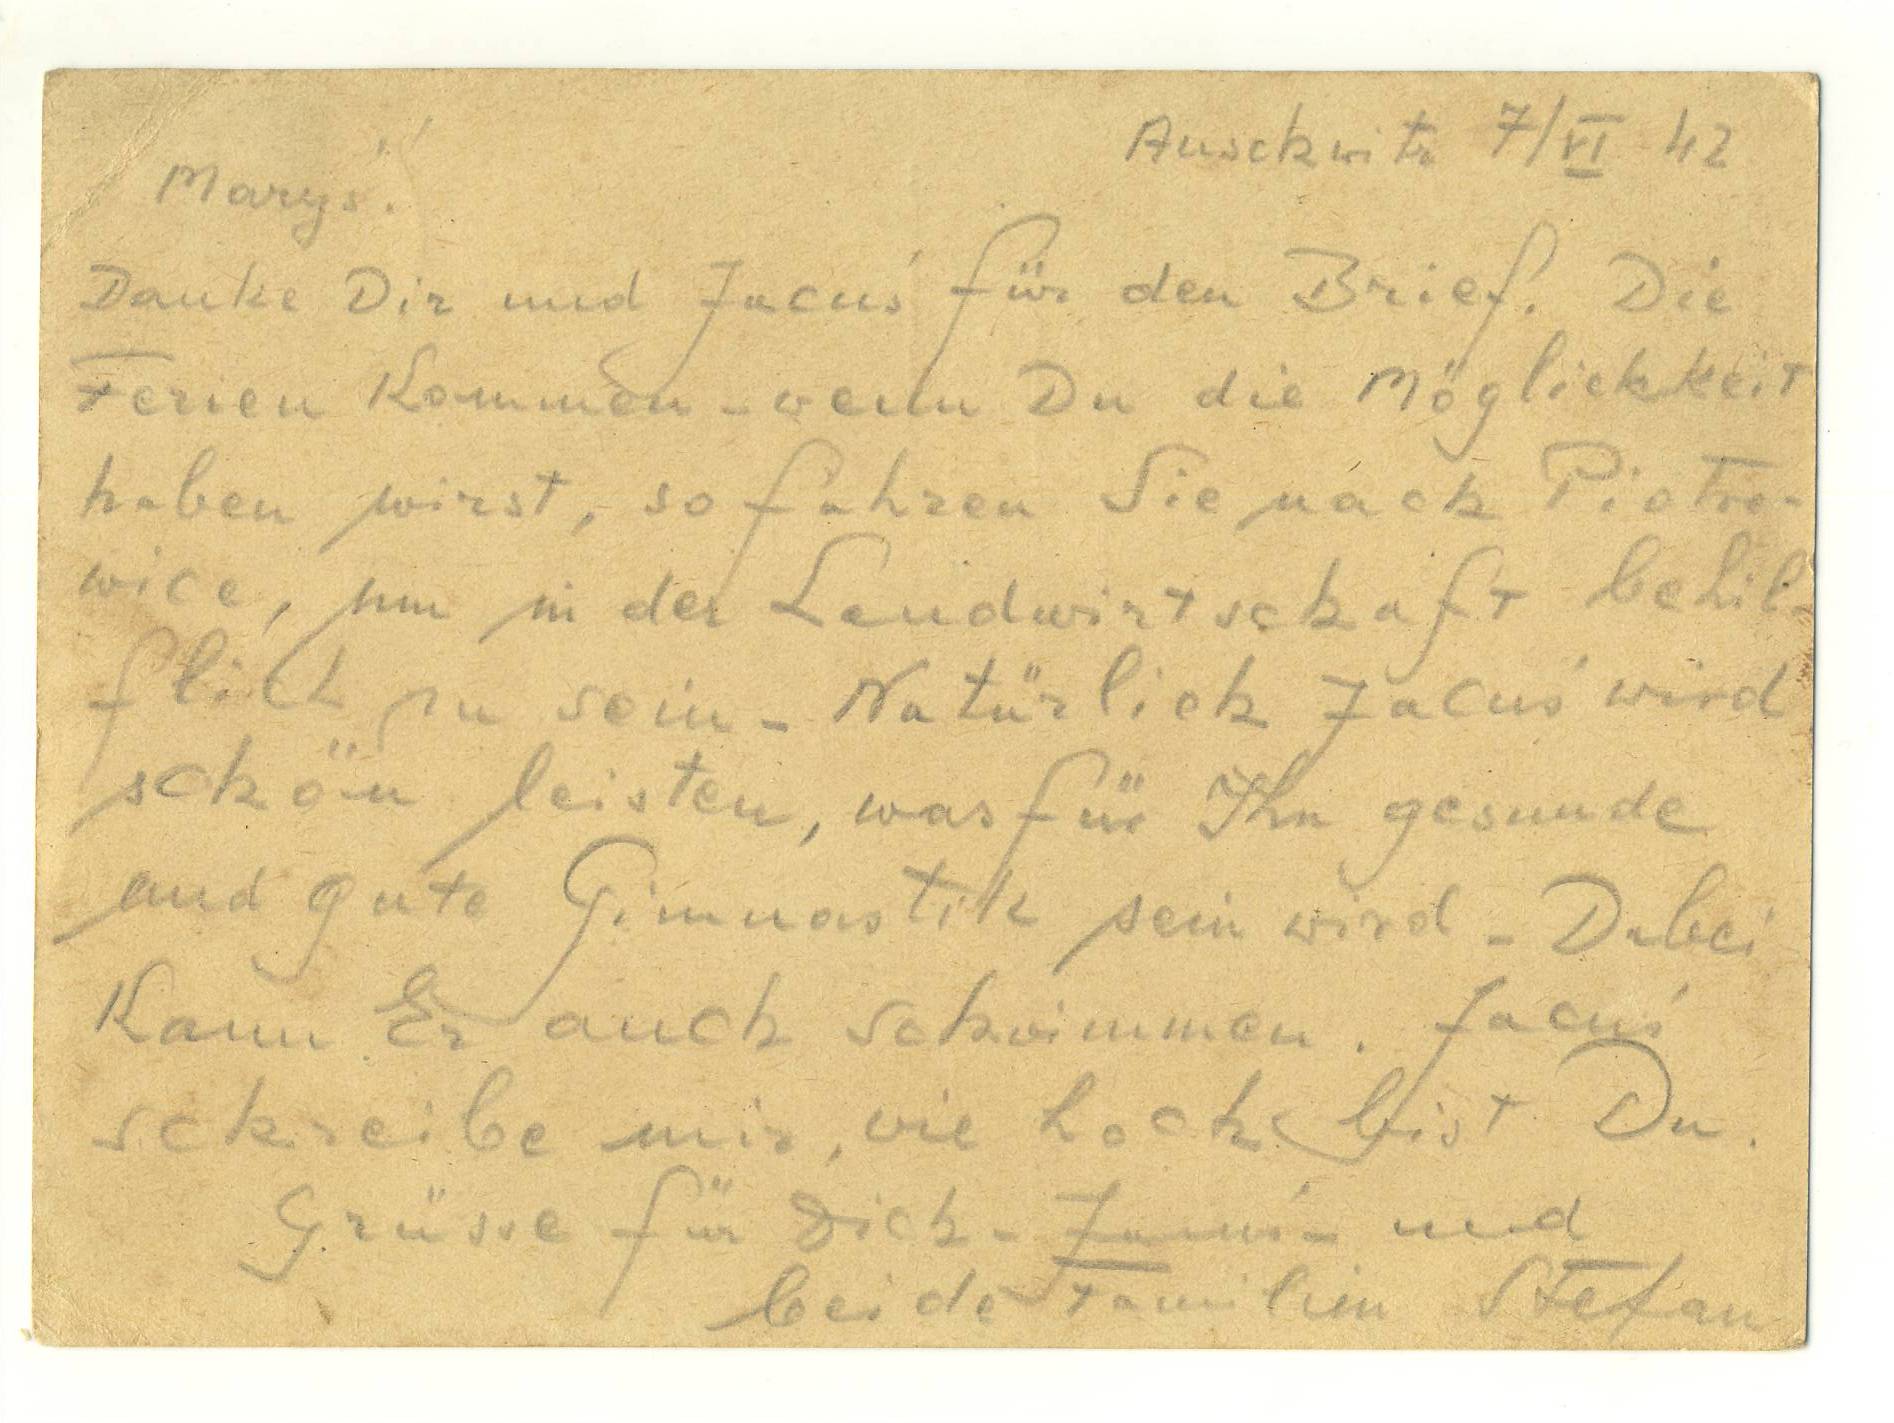 Auschwitz 7/VI 42
Maryś!
Danke Dir und Jacuś für den Brief. Die
Ferien kommen - wenn Du die Möglichkeit
haben wirst, so fahren Sie nach Piotro-
wice, um in der Landwirtschaft behil-
flich zu sein - Natürlich Jacuś wird
schön leisten, was für Ihn gesunde
und gute Gimnastik sein wird - Dabei
kann Er auch schwimmen. Jacuś
schreibe mir, wie hoch bist Du.
Grüsse für Dich - Jacuś - und
beide Familien Stefan